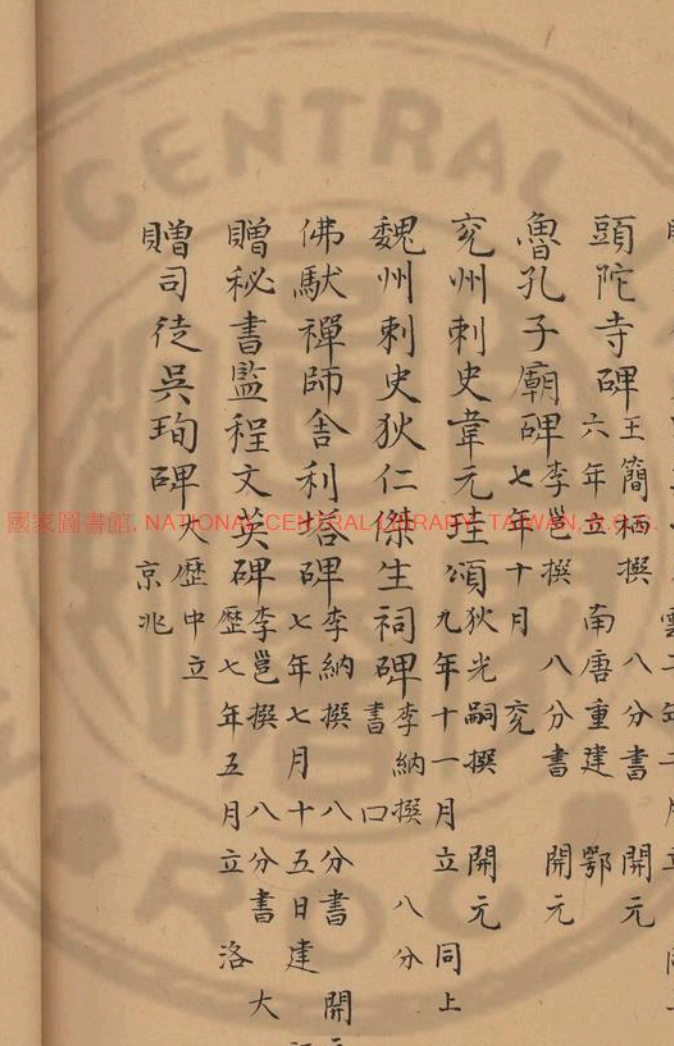 頭陀寺碑王簡栖撰 八分書 開元六年立 南唐重建 鄂
魯孔子廟碑李邕撰 八分書 開元七年十月 兗
兗州刺史韋元珪頌狄光嗣撰 開元九年十一月立 同上
魏州刺史狄仁傑生祠碑李納撰 八分書 口
佛馱禪師舍利塔碑李納撰 八分書 開元七年七月十五日建
贈秘書監程文英碑李邕撰 八分書 大歷七年五月立 洛
贈司徒吳珣碑大歷中立 京兆
國家圖書館, NATIONAL CENTRAL LIBRARY, TAIWAN, R.O.C.
CENTRAL
ROC